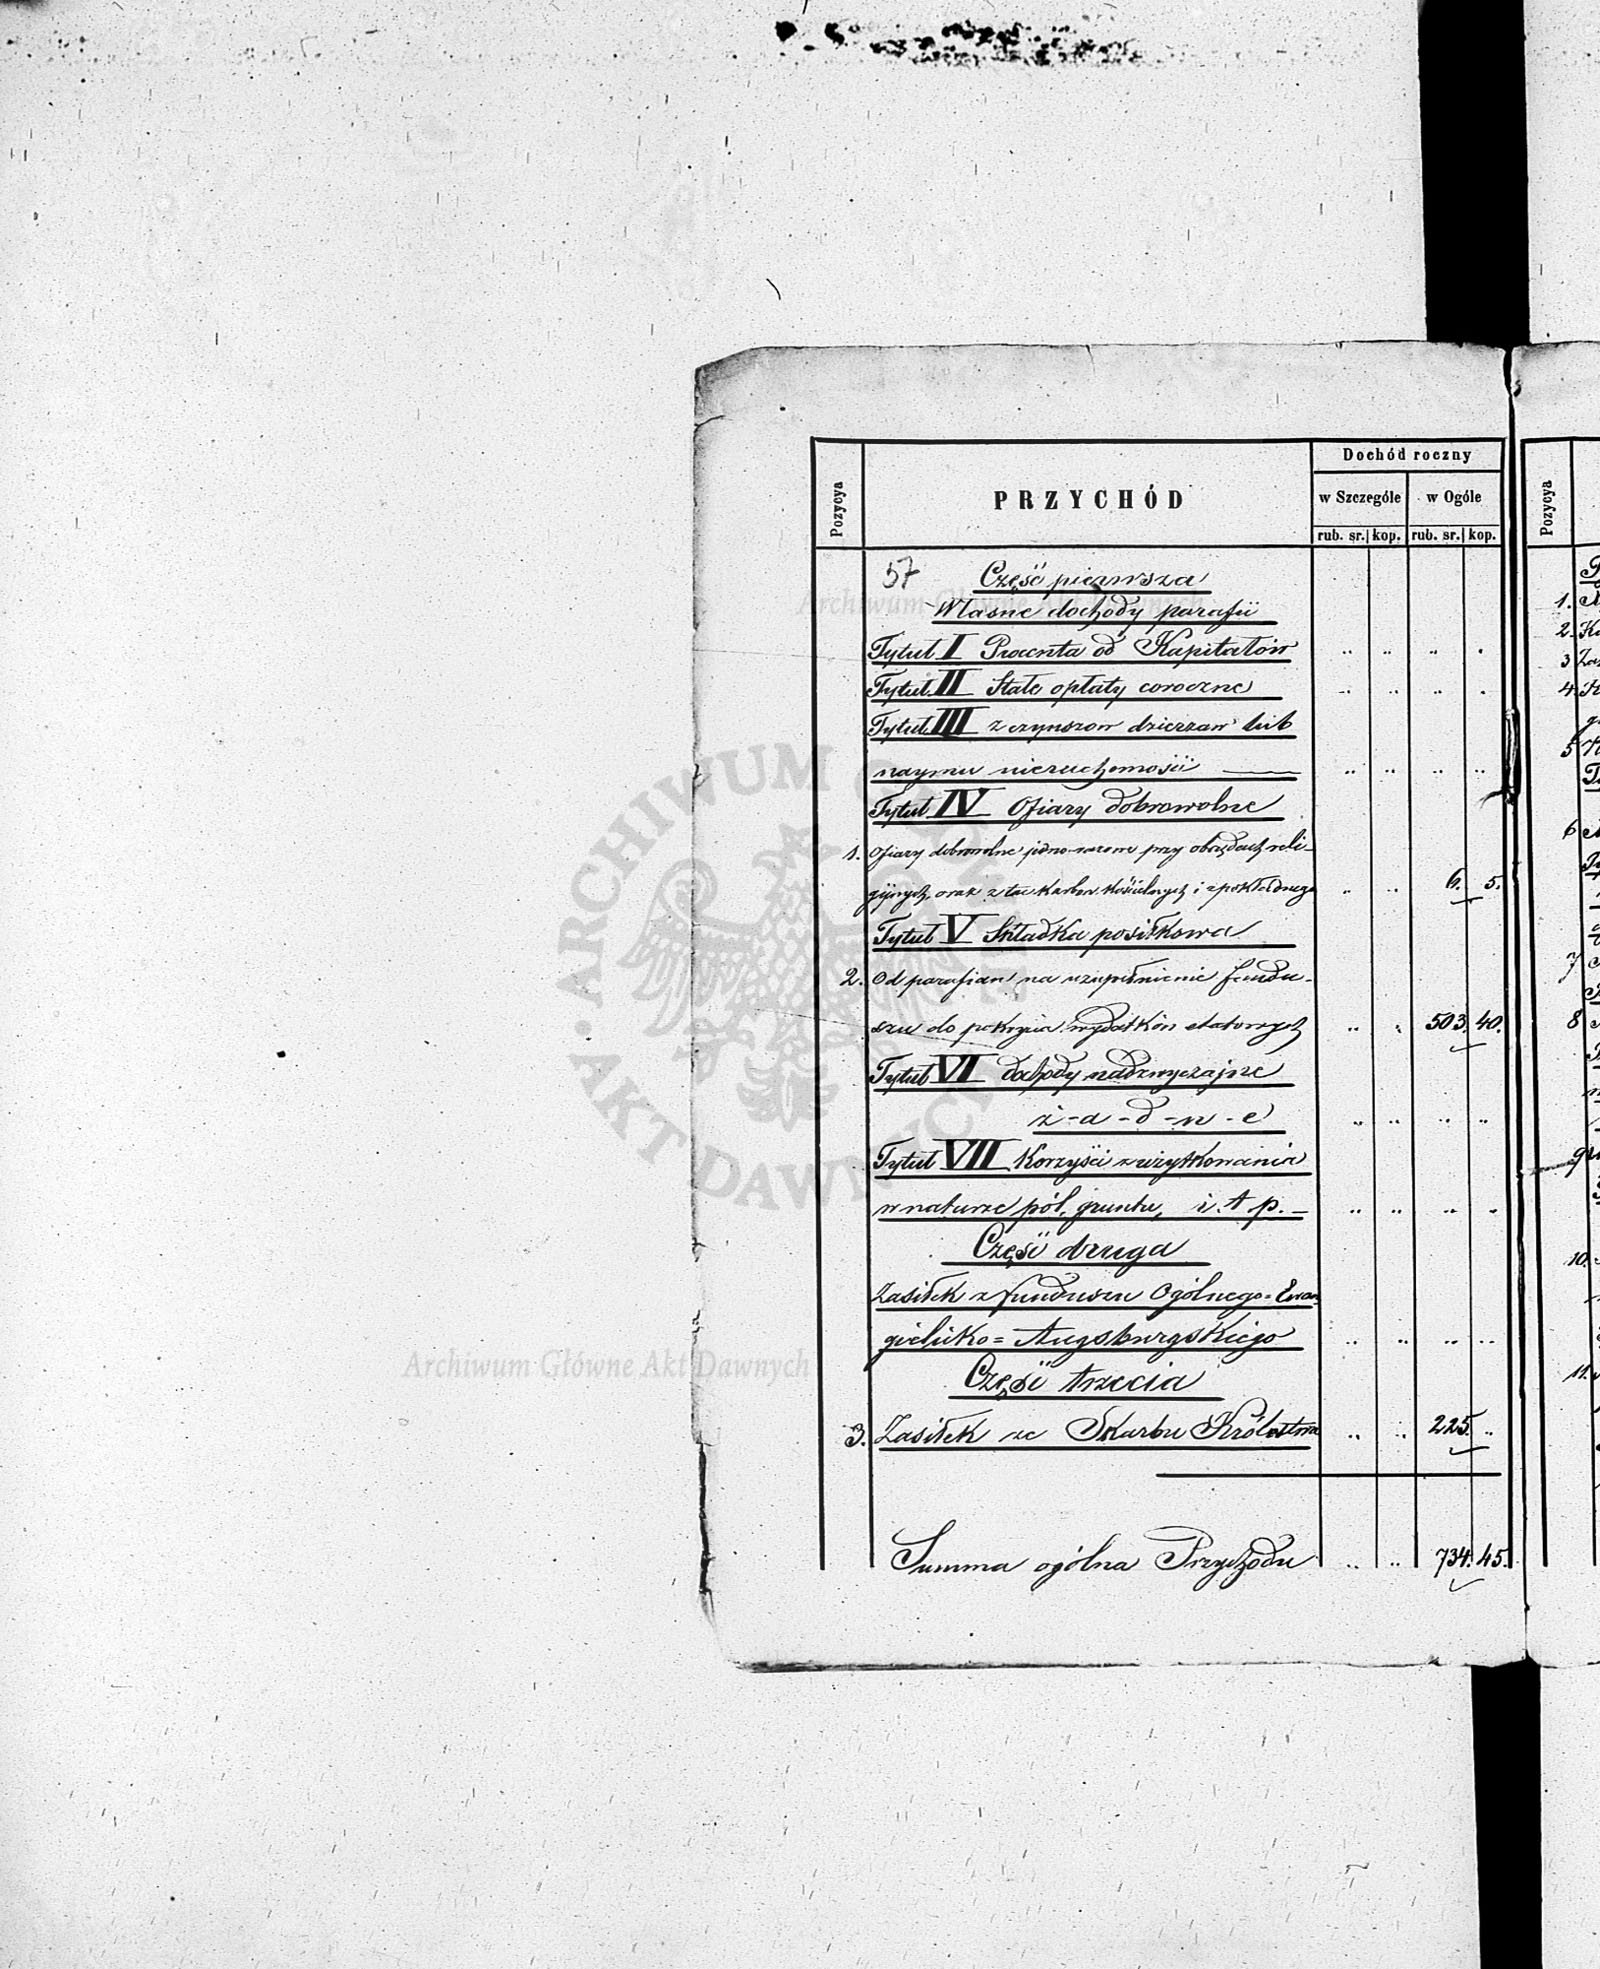 Dochód roczny
Pozycya
PRZYCHÓD
w Szczególe w Ogóle
rub. sr. kop. rub. sr. kop.
57 Część pierwsza
Własne dochody parafii
Tytuł I Procenta od Kapitałów " " " "
Tytuł II Stałe opłaty coroczne " " " "
Tytuł III z czynszow dzierzaw lub
naymu nieruchomości " " " "
Tytuł IV Ofiary dobrowolne
1. Ofiary dobrowolne jedno-razowe przy obrzędach reli-
gijnych, oraz z tac karbon kościelnych i z pokładnego " " 6. 5.
Tytuł V Składka posiłkowa
2. Od parafian na uzupełnienie fundu-
szu do pokrycia wydatków etatowych " " 503. 40.
Tytuł VI dochody nadzwyczajne
ż-a-d-n-e " " " "
Tytuł VII Korzyści z użytkowania
w naturze pól, gruntu, i. t. p. " " " "
Część druga
Zasiłek z funduszu Ogólnego-Ewan
gielicko=Augsburgskiego " " " "
Część trzecia
3. Zasiłek ze Skarbu Królestwa " " 225. "
Summa ogólna Przychodu " " 734. 45.
Pozycya
1.
2.
3
4.
5
6
7
8
9
10.
11.
ARCHIWUM GŁÓWNE AKT DAWNYCH
Archiwum Główne Akt Dawnych
Archiwum Główne Akt Dawnych